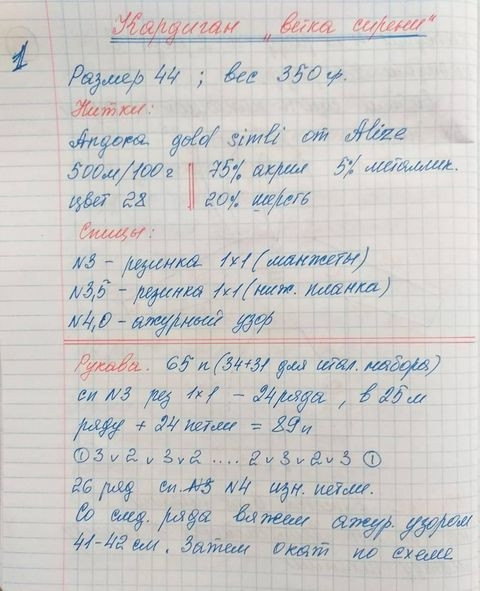 Кардиган „ветка сирени"
1
Размер 44 ; вес 350гр.
Нитки:
Ангора gold simli от Alize
500м/100г || 75% акрил 5% металлик.
цвет 28 || 20% шерсть
Спицы:
N3 - резинка 1x1 (манжеты)
N3,5 - резинка 1x1 (ниж. планка)
N4,0 - ажурный узор
Рукава. 65 п (34+31 для итал. набора)
сп N3 рез 1x1 - 24 ряда, в 25м
ряду + 24 петли = 89п
① 3 v 2 v 3 v 2 .... 2 v 3 v 2 v 3 ①
26 ряд сп. N3 N4 изн. петли.
Со след. ряда вяжем ажур. узором
41-42 см. Затем окат по схеме